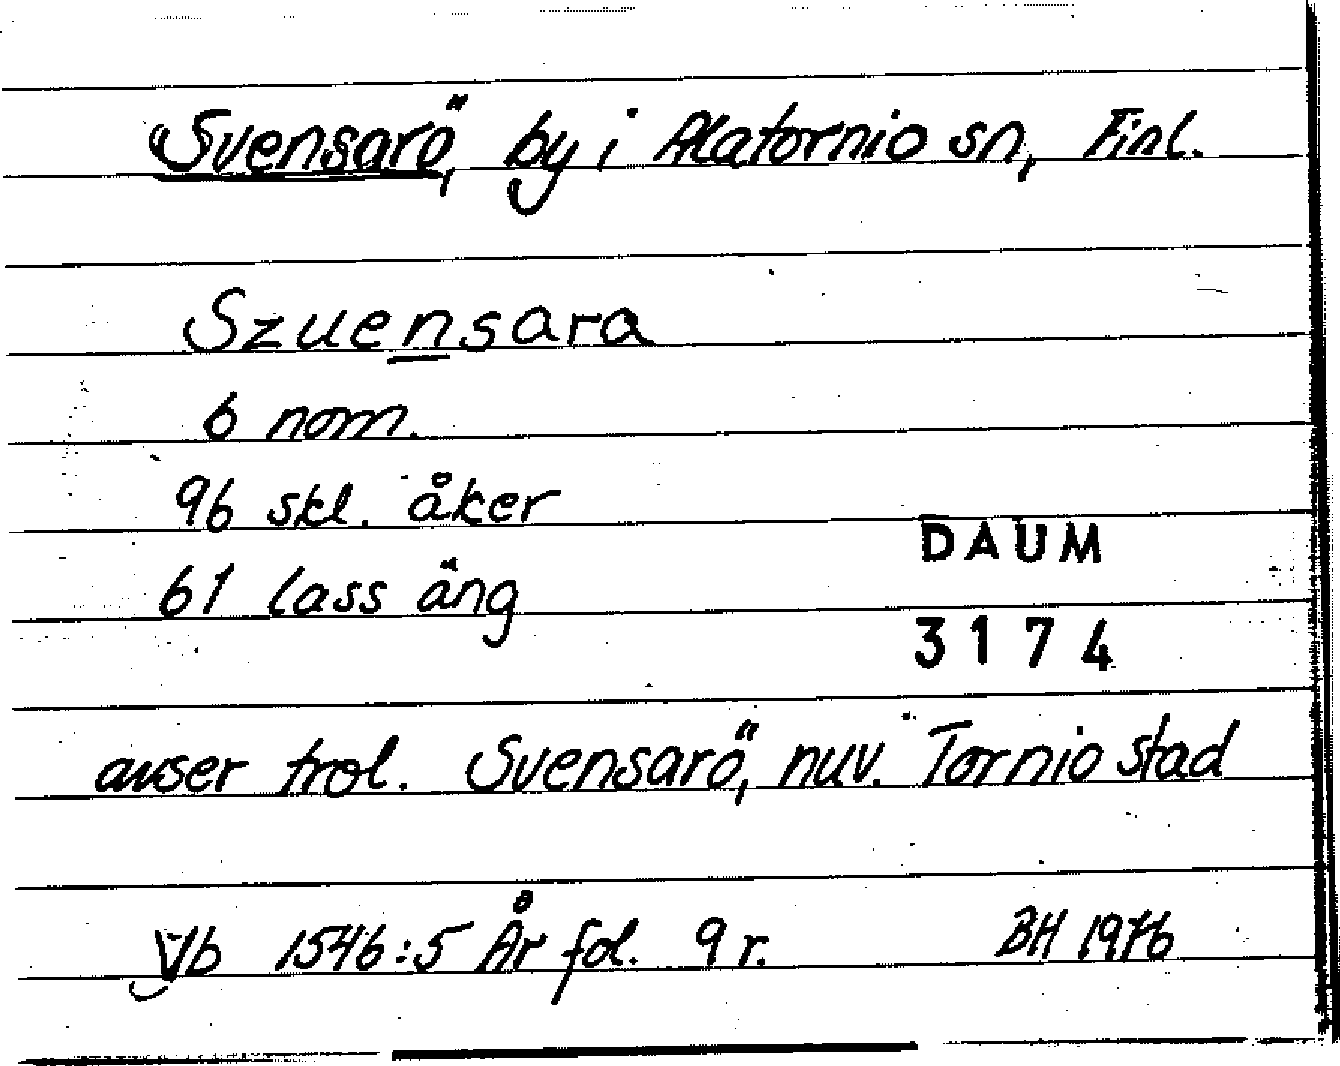 "Svensarö", by i Alatornio sn, Finl.
Szuensara
6 nom.
96 skl. åker
61 lass äng
DAUM
3174
avser trol. Svensarö", nuv. Tornio stad
Vb 1546:5 År fol. 9 r. BH 1976